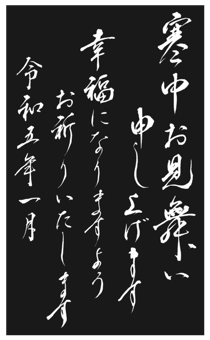 寒中お見舞い
申し上げます
幸福になりますよう
お祈りいたします
令和五年一月